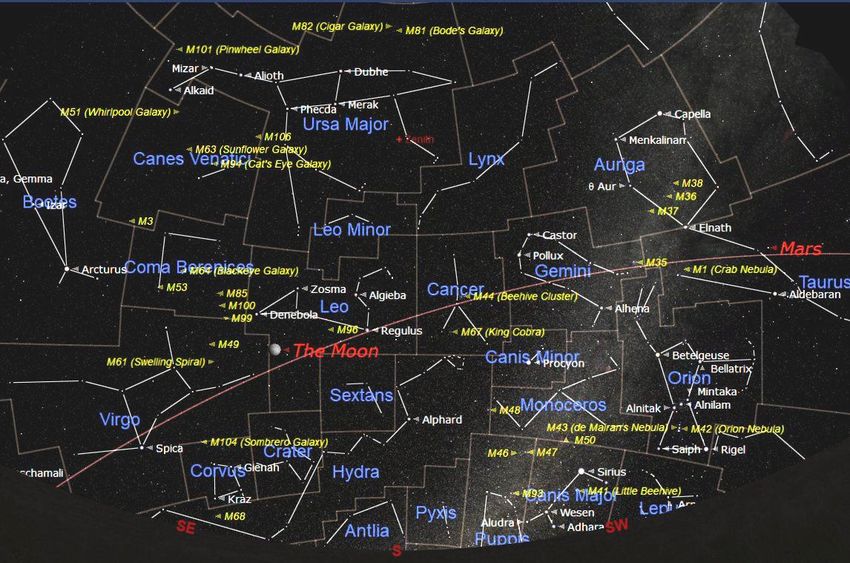 M82 (Cigar Galaxy)
M81 (Bode's Galaxy)
M101 (Pinwheel Galaxy)
Mizar
Alioth
Dubhe
Alkaid
Phecda
Merak
M51 (Whirlpool Galaxy)
Capella
Ursa Major
M106
Zenith
Menkalinan
M63 (Sunflower Galaxy)
Canes Venatici
M94 (Cat's Eye Galaxy)
Lynx
Auriga
a, Gemma
θ Aur
M38
M36
Bootes
Izar
M37
M3
Leo Minor
Elnath
Castor
Mars
Pollux
M35
Arcturus
Coma Berenices
M64 (Blackeye Galaxy)
Gemini
M1 (Crab Nebula)
Taurus
M53
Zosma
Cancer
M85
Algieba
M44 (Beehive Cluster)
Aldebaran
M100
Leo
Alhena
M99
Denebola
M96
Regulus
M67 (King Cobra)
M49
The Moon
Canis Minor
Procyon
Betelgeuse
M61 (Swelling Spiral)
Bellatrix
Orion
Mintaka
Sextans
Monoceros
Alnilam
Alnitak
M48
Virgo
Alphard
M43 (de Mairan's Nebula)
M42 (Orion Nebula)
M50
Spica
M104 (Sombrero Galaxy)
Crater
M46
M47
Saiph
Rigel
schamali
Corvus
Gienah
Hydra
Sirius
M93
Canis Major
M41 (Little Beehive)
Kraz
Lep
Arn
M68
Pyxis
Wesen
SE
Antlia
Aludra
Adhara
SW
Puppis
S